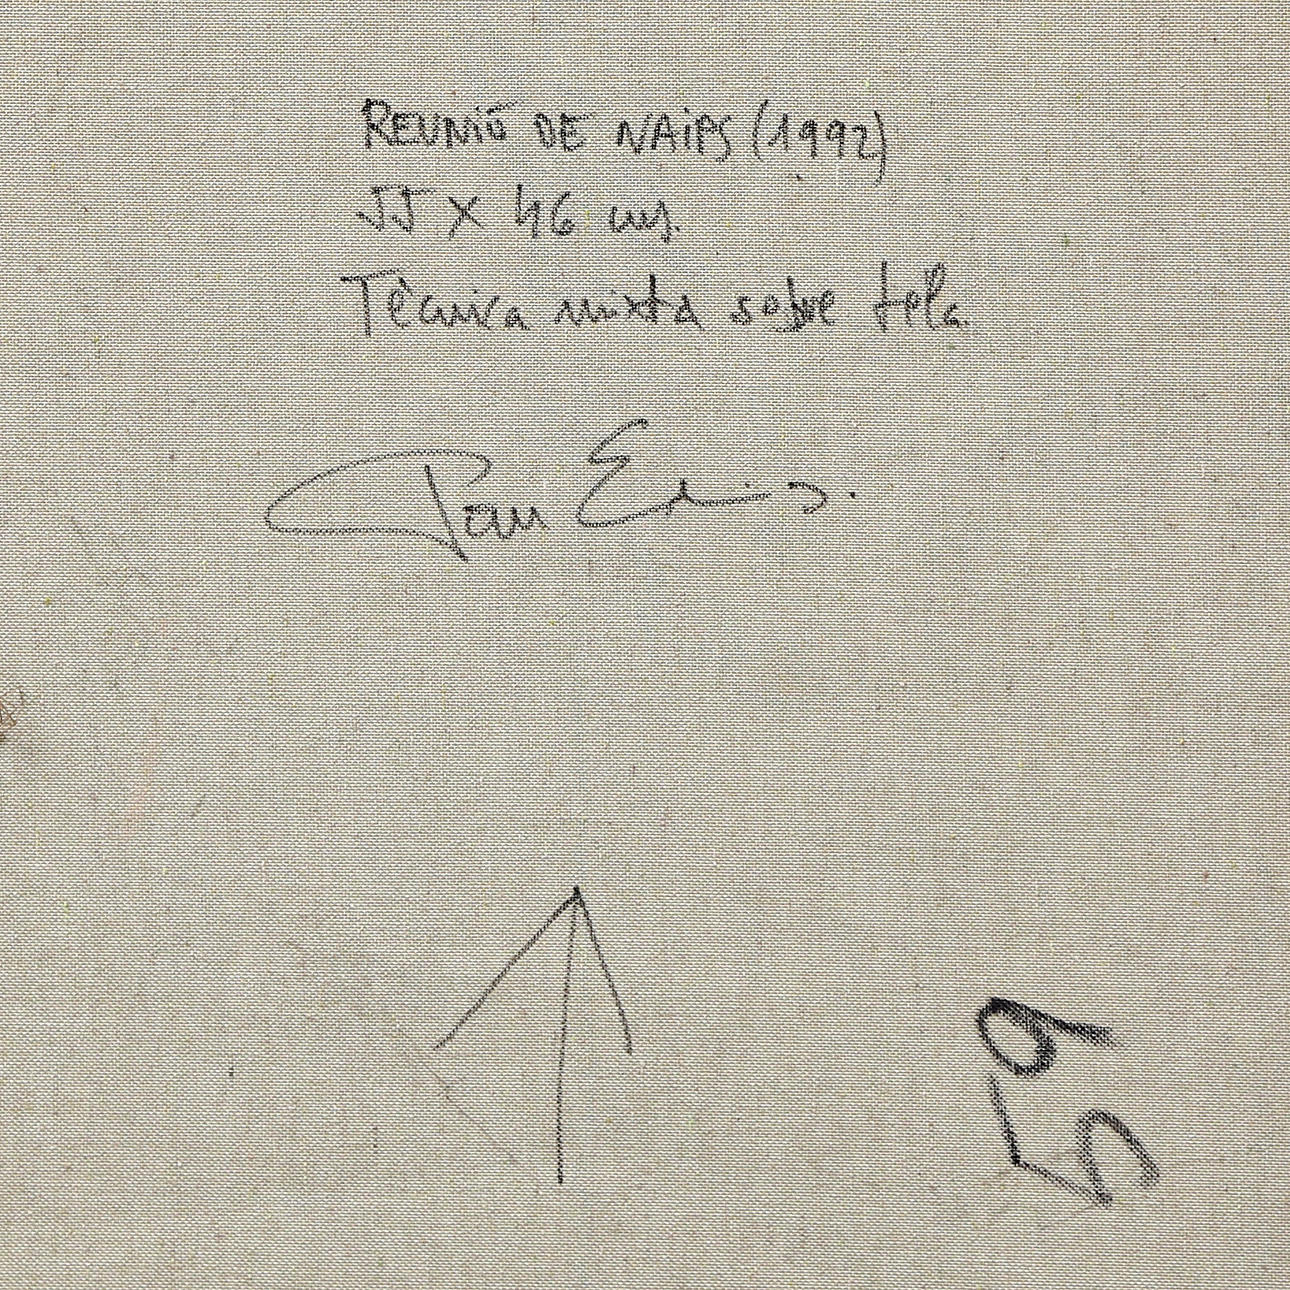 REUNIÓ DE NAIPS (1992)
55 X 46 cms.
Tècnica mixta sobre tela
59